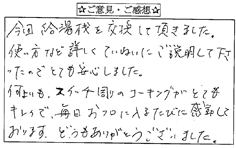 ☆ご意見・ご感想☆
今回給湯機を交換して頂きました。
使い方など詳しくていねいにご説明して下さ
ったのでとても安心しました。
何よりも、スイッチ周りのコーキングがとても
キレイで、毎日おフロに入るたびに感動して
おります。どうもありがとうございました。